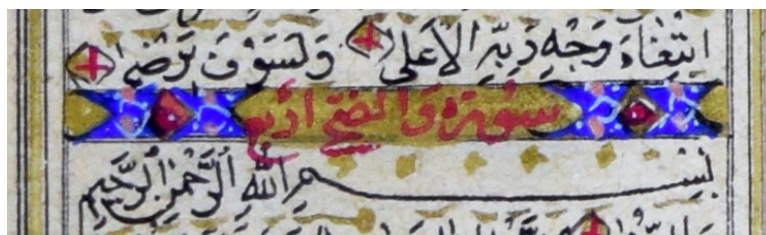 ابْتِغَاءَ وَجْهِ رَبِّهِ الْأَعْلَى وَلَسَوْفَ يَرْضَى
سورة والضحى اربع
بِسْمِ اللهِ الرَّحْمٰنِ الرَّحِيمِ